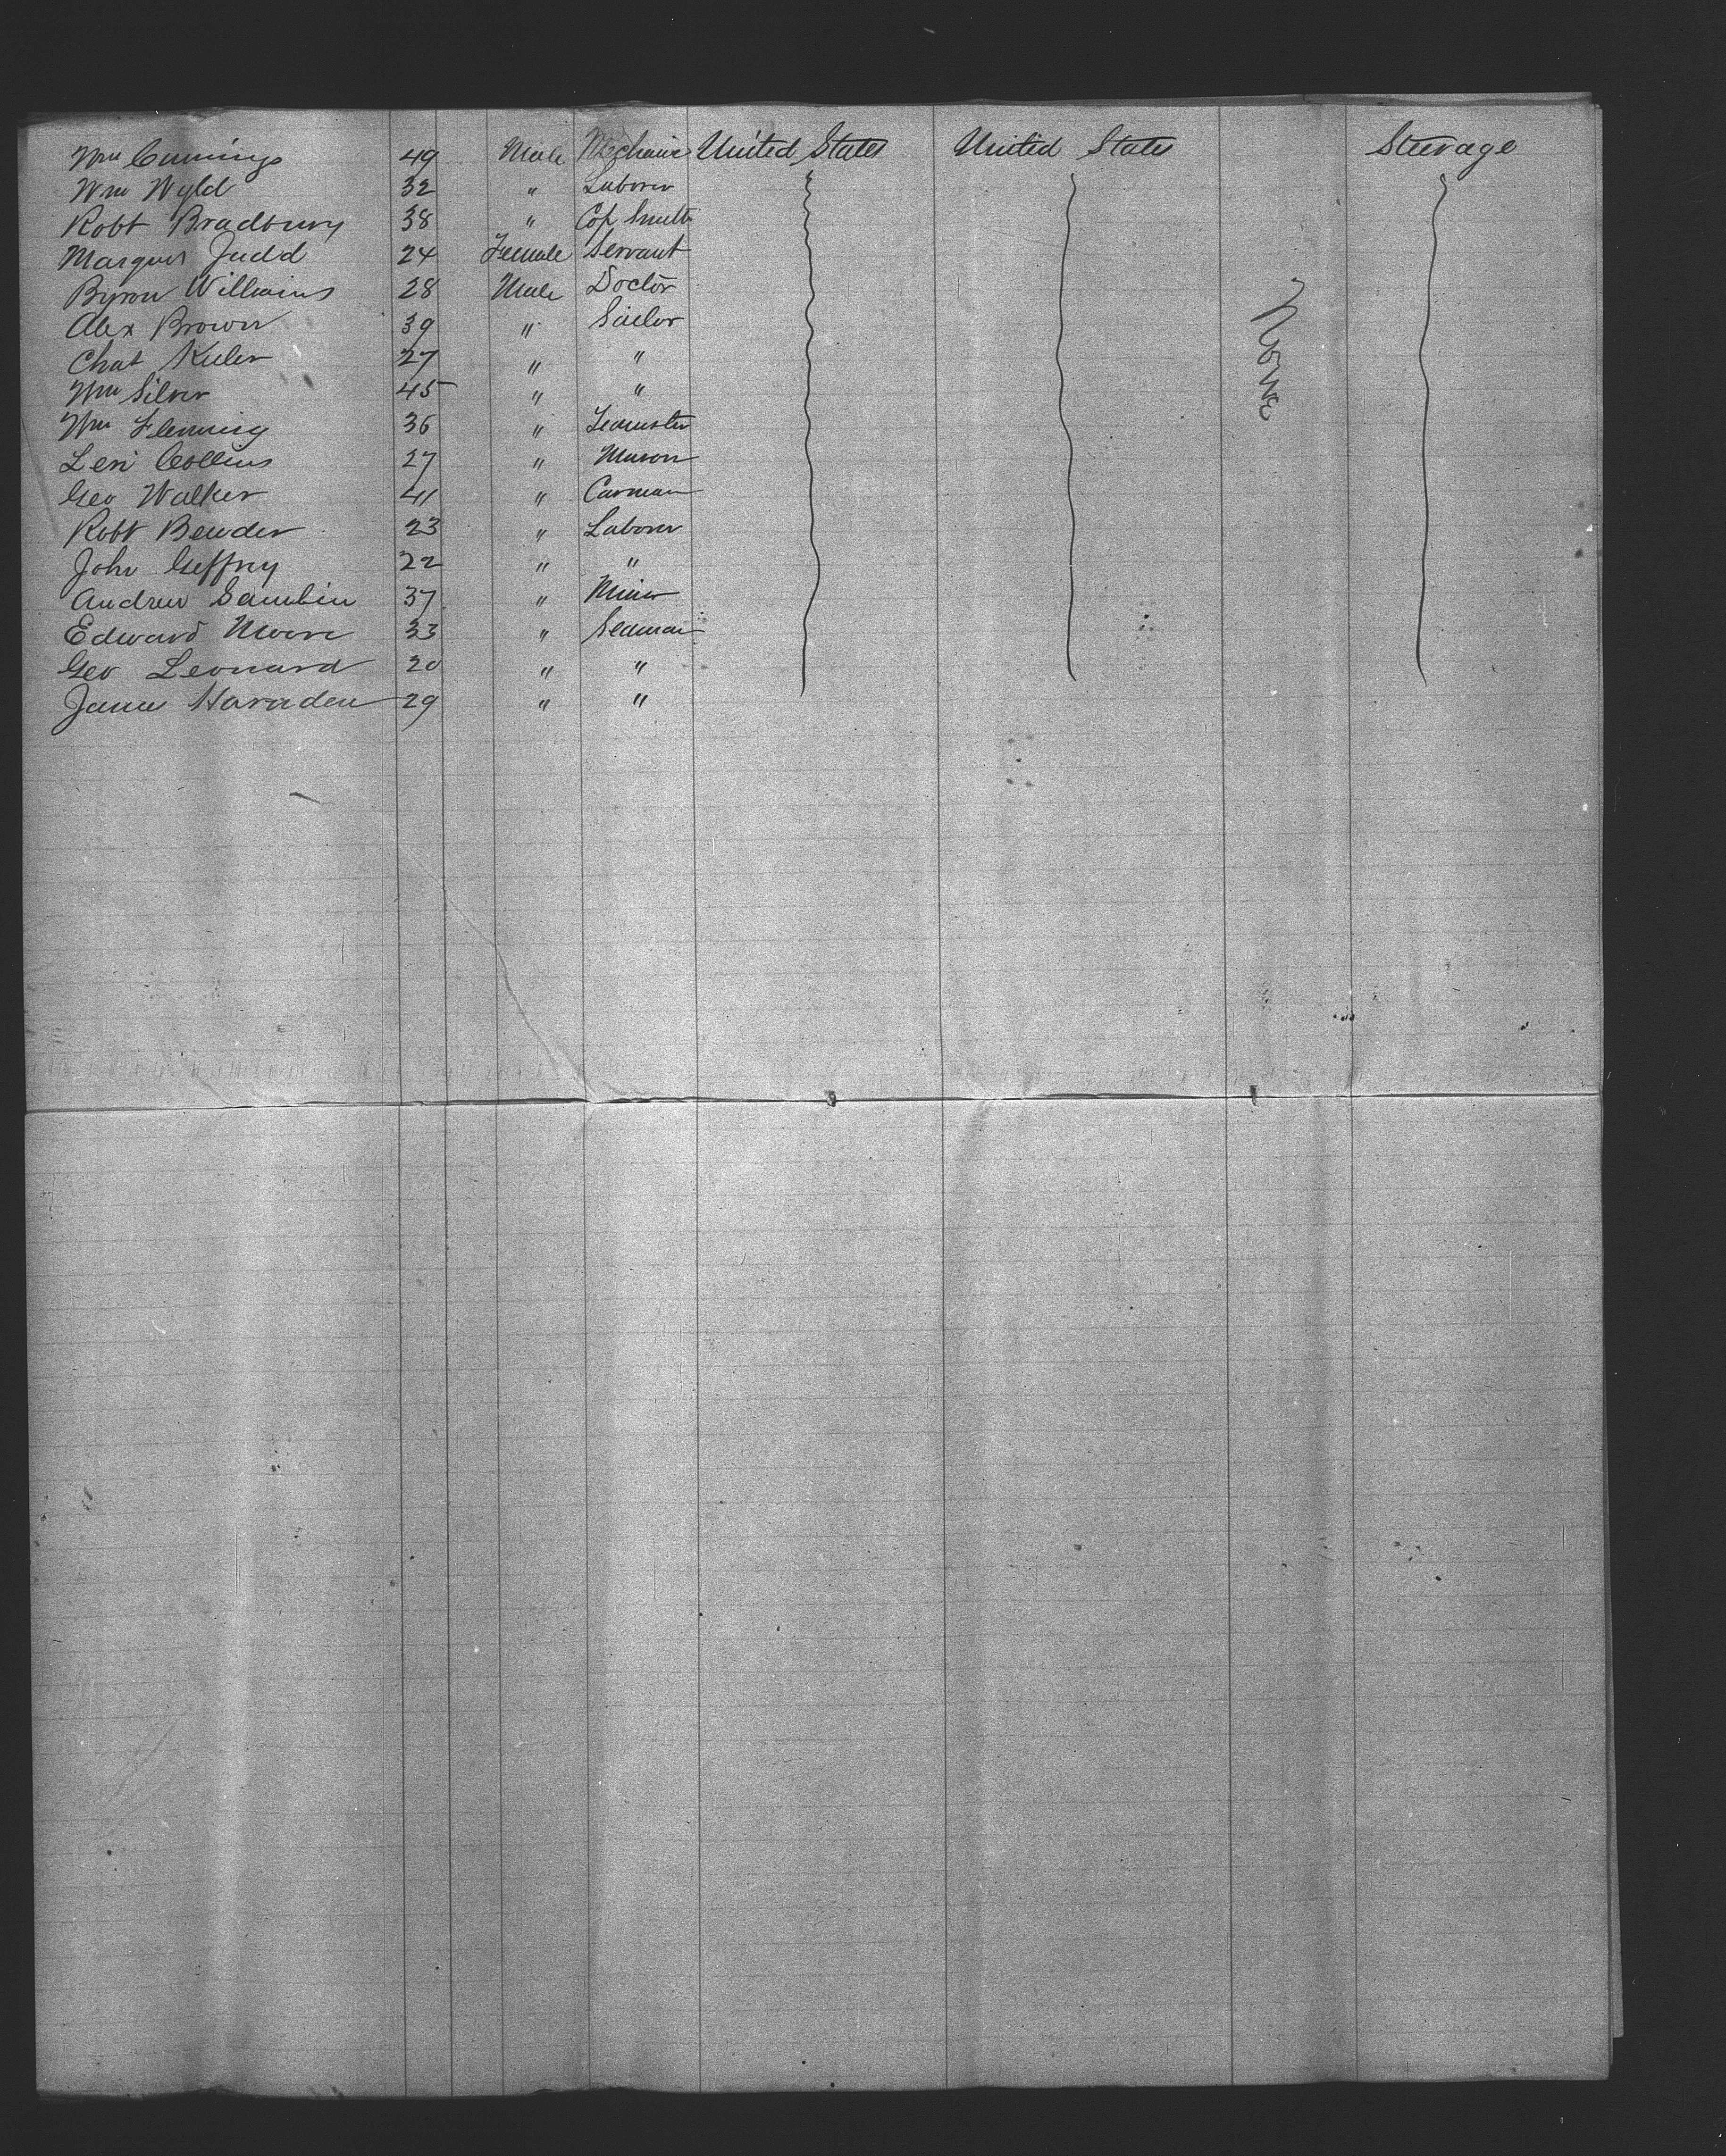 Wm Cumings 49 Male Mechanic United States United States Steerage
Wm Wyld 32 " Laborer
Robt Bradbury 38 " Cop Smith
Marquis Judd 24 Female Servant
Byron Williams 28 Male Doctor
Alex Brown 39 " Sailor
Chat 27 " "
Wm Silver 45 " "
Wm Fleming 36 " Teamster
Levi Collins 27 " Mason
Geo Walker 41 " Carman
Robt Bender 23 " Laborer
John Geffrey 22 " "
Andrew Samblin 37 " Miner
Edward Moore 33 " Seaman
Geo Leonard 20 " "
James Harnden 29 " "
None